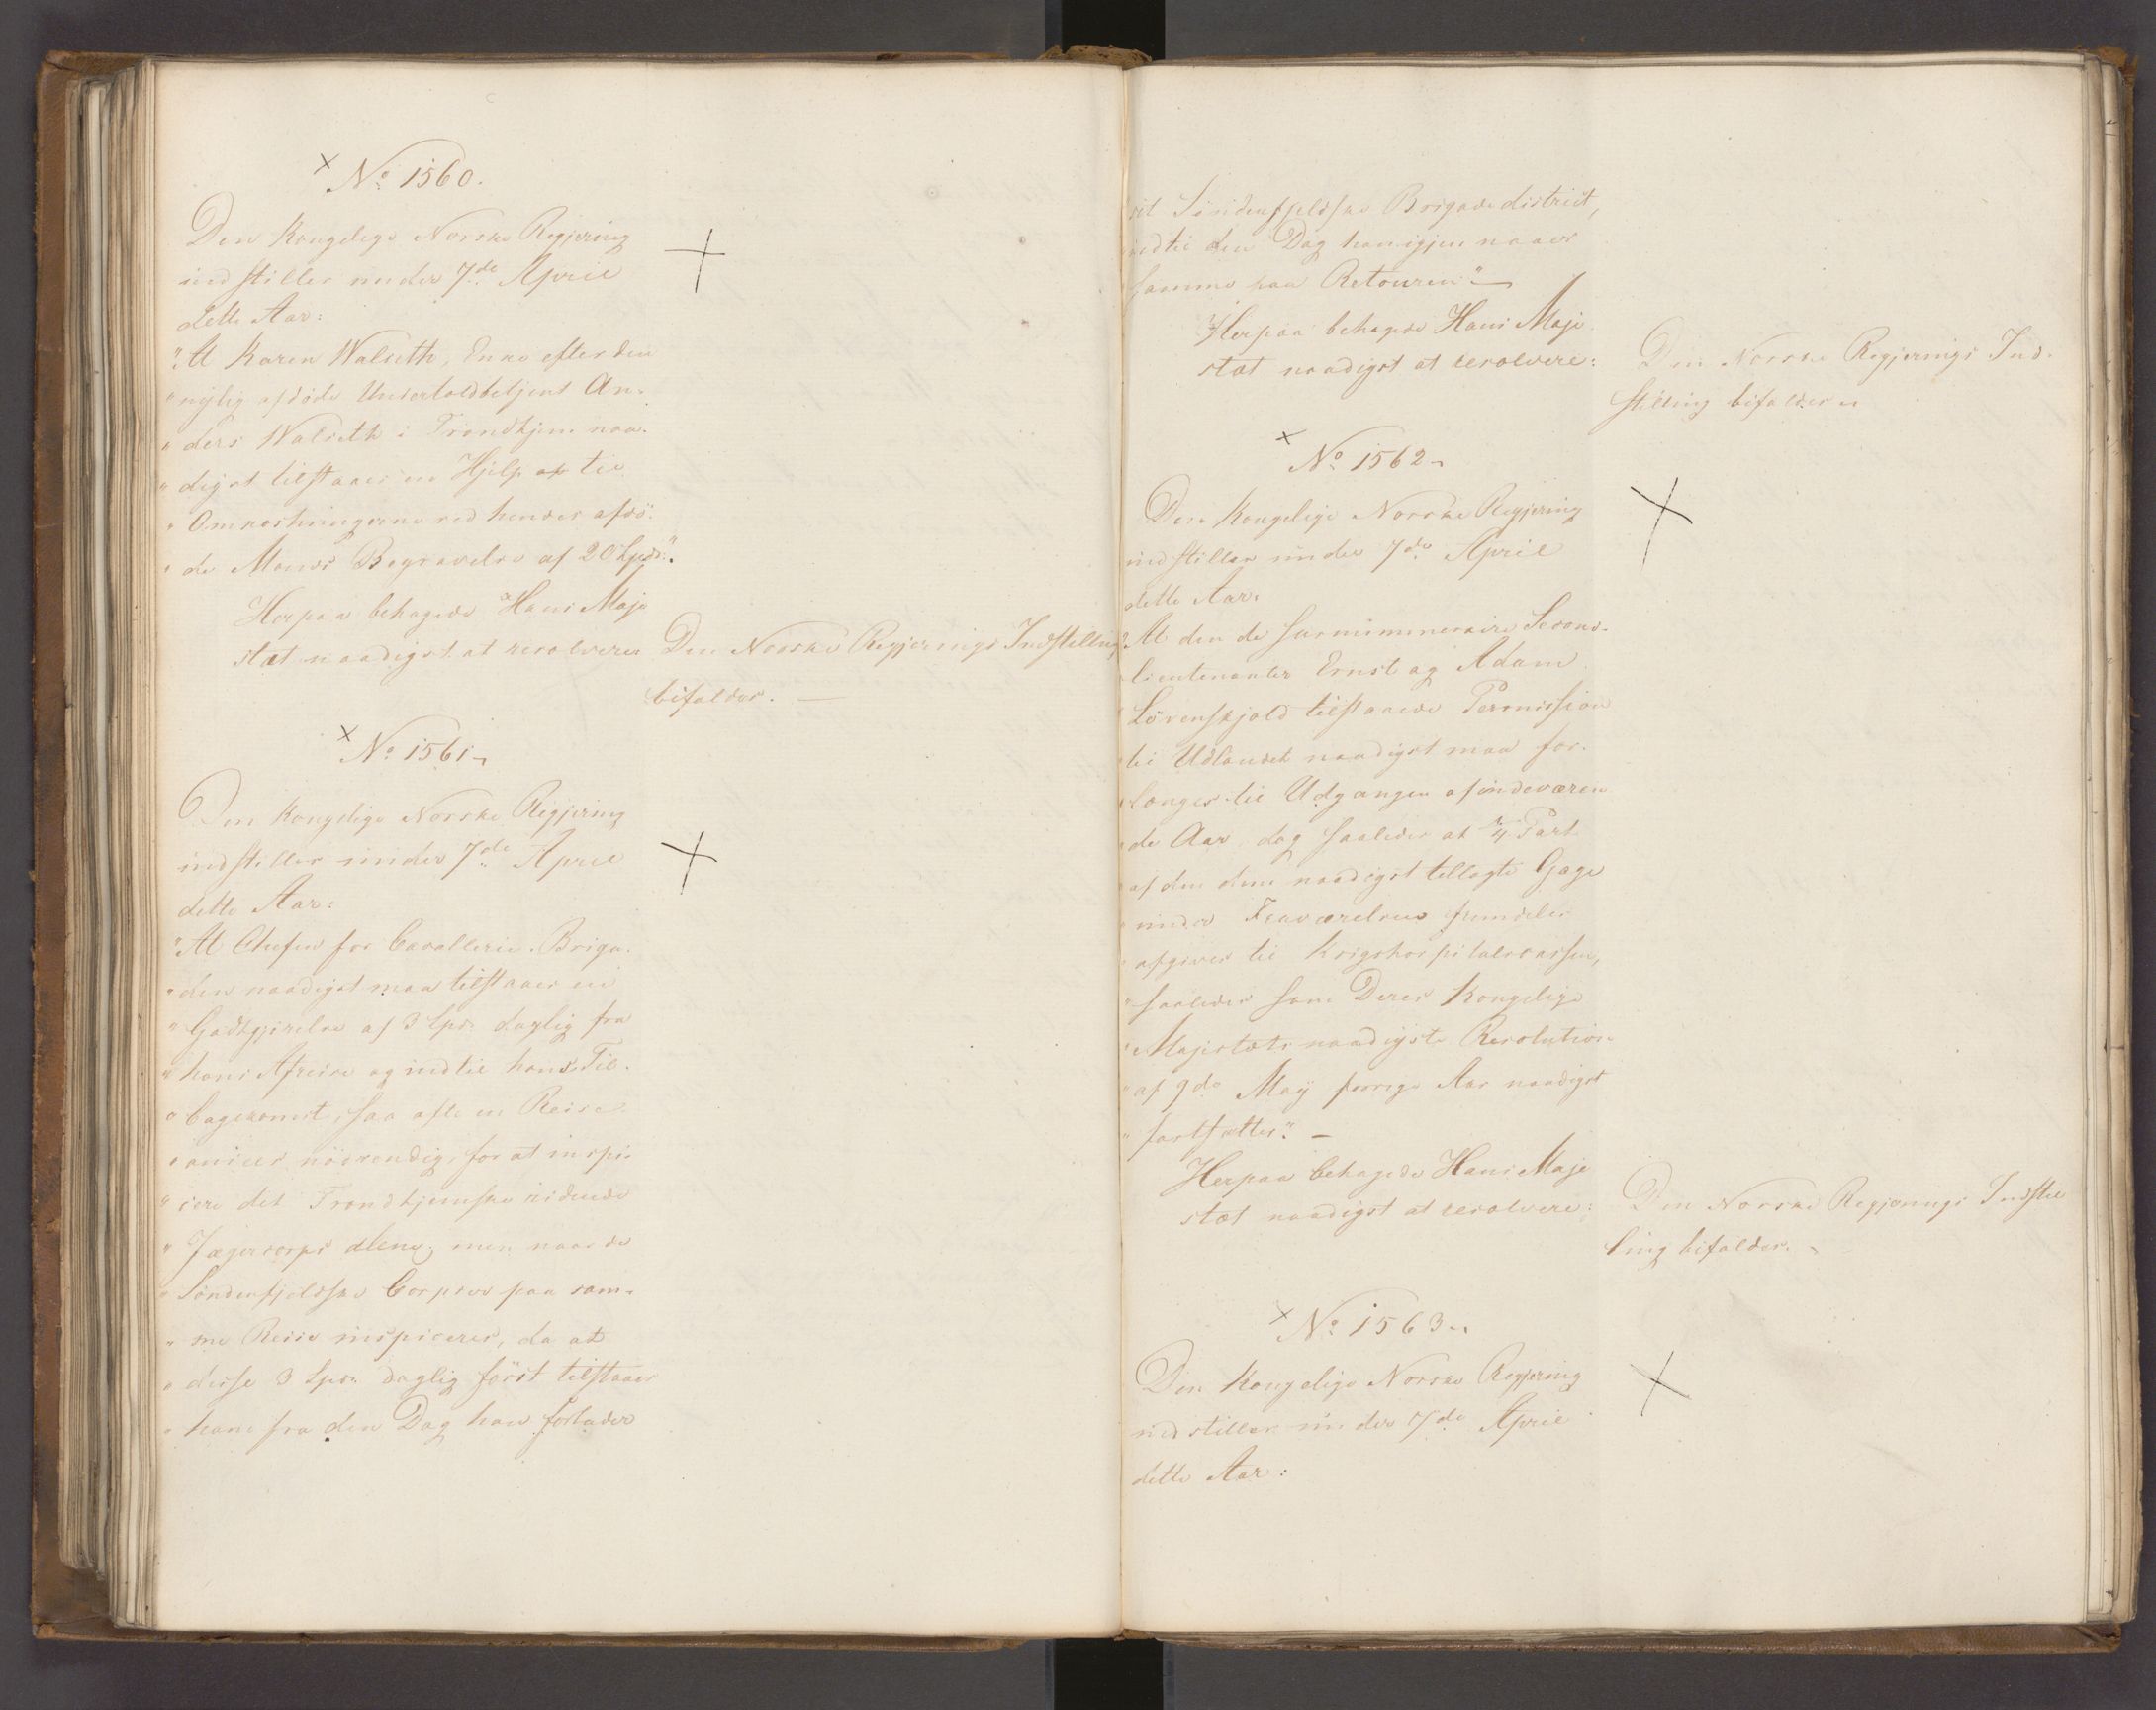 × No 1560.
Den Kongelige Norske Regjering
indstiller under 7de April
dette Aar:
"At Karen Walseth, Enke efter den
"nylig afdöde Undertoldbetjent An-
"ders Walseth i Trondhjem naa-
"digst tilstaaes en Hjelp af til
"Omkostningerne ved hendes afdö-
"de Mands Begravelse af 20 Spd:".
Herpaa behagede Hans Maje
stæt naadigst at resolvere
Den Norske Regjerings Indstilling
bifaldes. —
× No 1561
Den Kongelige Norske Regjering
indstiller under 7de April
dette Aar:
"At Chefen for Cavallerie-Briga-
"den naadigst maa tilstaaes en
"Godtgjörelse af 3 Spd. daglig fra
"hans Afreise og indtil hans Til-
"bagekomst, saa ofte en Reise
"ansees nödvendig for at inspi-
"cere det Trondhjemske ridende
"Jægercorps alene; men naar de
"Söndenfjeldske Corpser paa sam-
"me Reise inspiceres, da at
"disse 3 Spd. daglig först tilstaaes
"ham fra den Dag han forlader
sit Söndenfjeldske Brigadedistrict,
indtil den Dag han igjen naaer
samme paa Retouren" —
Herpaa behagede Hans Maje
stæt naadigst at resolvere:
Den Norske Regjerings Ind-
stilling bifaldes
× No 1562
Den Kongelige Norske Regjering
indstiller under 7de April
dette Aar:
"At den de surnummeraire Second-
"lieutenanter Ernst og Adam
"Lövenskjold tilstaaede Permission
"til Udlandet naadigst maa for-
"længes til Udgangen af indeværen
"de Aar dog saaledes at 1/4 Part
"af den dem naadigst tillagte Gage
"under Fraværelsen fremdeles
"afgives til Krigshospitalscassen,
"saaledes som Deres Kongelige
"Majestæts naadigste Resolution
"af 9de Maÿ forrige Aar naadigst
"fastsætter". —
Herpaa behagede Hans Maje
stæt naadigst at resolvere:
Den Norske Regjerings Indstil
ling bifaldes.
× No 1563
Den Kongelige Norske Regjering
indstiller under 7de April
dette Aar: